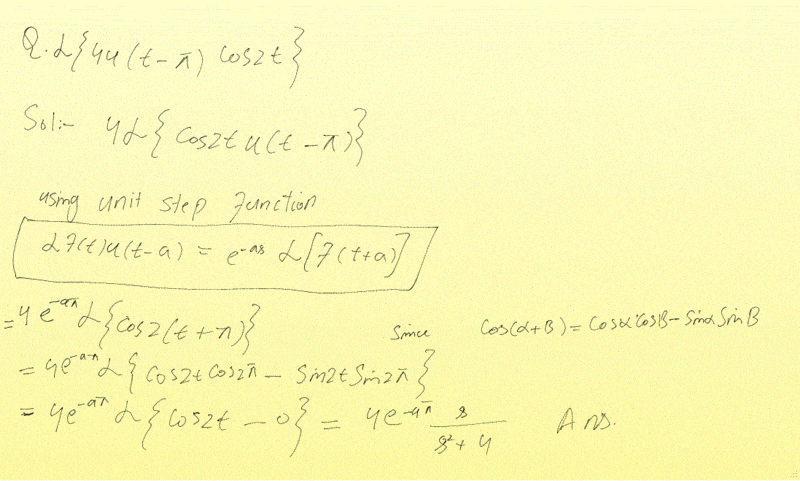 Q. L{4u(t-π) cos2t}
Sol:- 4L{cos2t u(t-π)}
using unit step function
L f(t)u(t-a) = e^-as L[f(t+a)]
= 4e^-aπ L{cos2(t+π)} since cos(α+B) = cosα cosB - sinα sinB
= 4e^-aπ L{cos2t cos2π - sin2t sin2π}
= 4e^-aπ L{cos2t - 0} = 4e^-aπ s/(s²+4) Ans.